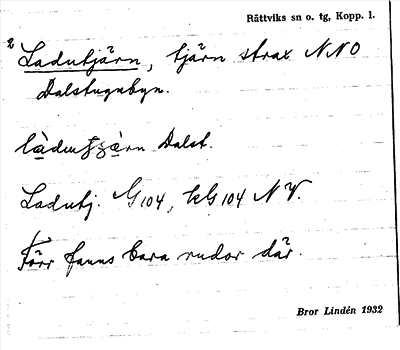 Rättviks sn o. tg, Kopp. l.
2 Ladutjärn, tjärn strax NNO
Dalstugubyn.
Dalst.
Ladutj. G104, kG104 NV.
Förr fanns bara rudor där.
Bror Lindén 1932